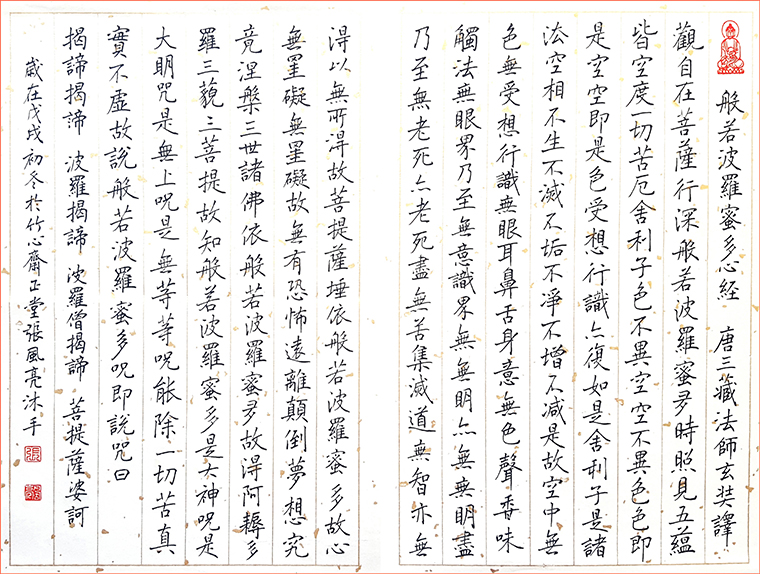 般若波羅蜜多心経 唐三藏法師玄奘譯
觀自在菩薩行深般若波羅蜜多時照見五蘊
皆空度一切苦厄舍利子色不異空空不異色色即
是空空即是色受想行識亦復如是舍利子是諸
法空相不生不滅不垢不淨不增不减是故空中無
色無受想行識無眼耳鼻舌身意無色聲香味
觸法無眼界乃至無意識界無無明亦無無明盡
乃至無老死亦老死盡無苦集滅道無智亦無
得以無所得故菩提薩埵依般若波羅蜜多故心
無罣礙無罣礙故無有恐怖遠離顛倒夢想究
竟涅槃三世諸佛依般若波羅蜜多故得阿耨多
羅三藐三菩提故知般若波羅蜜多是大神咒是
大明咒是無上咒是無等等咒能除一切苦真
實不虛故說般若波羅蜜多咒即說咒曰
揭諦揭諦 波羅揭諦 波羅僧揭諦 菩提薩婆訶
歲在戊戌初冬於竹心齋正堂張風亮沐手
張